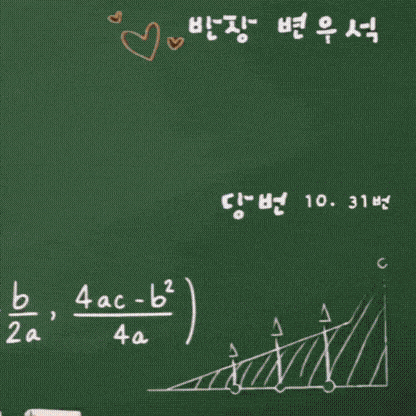 반장 변우석
당번 10. 31번
C
b/2a , (4ac - b²)/4a )